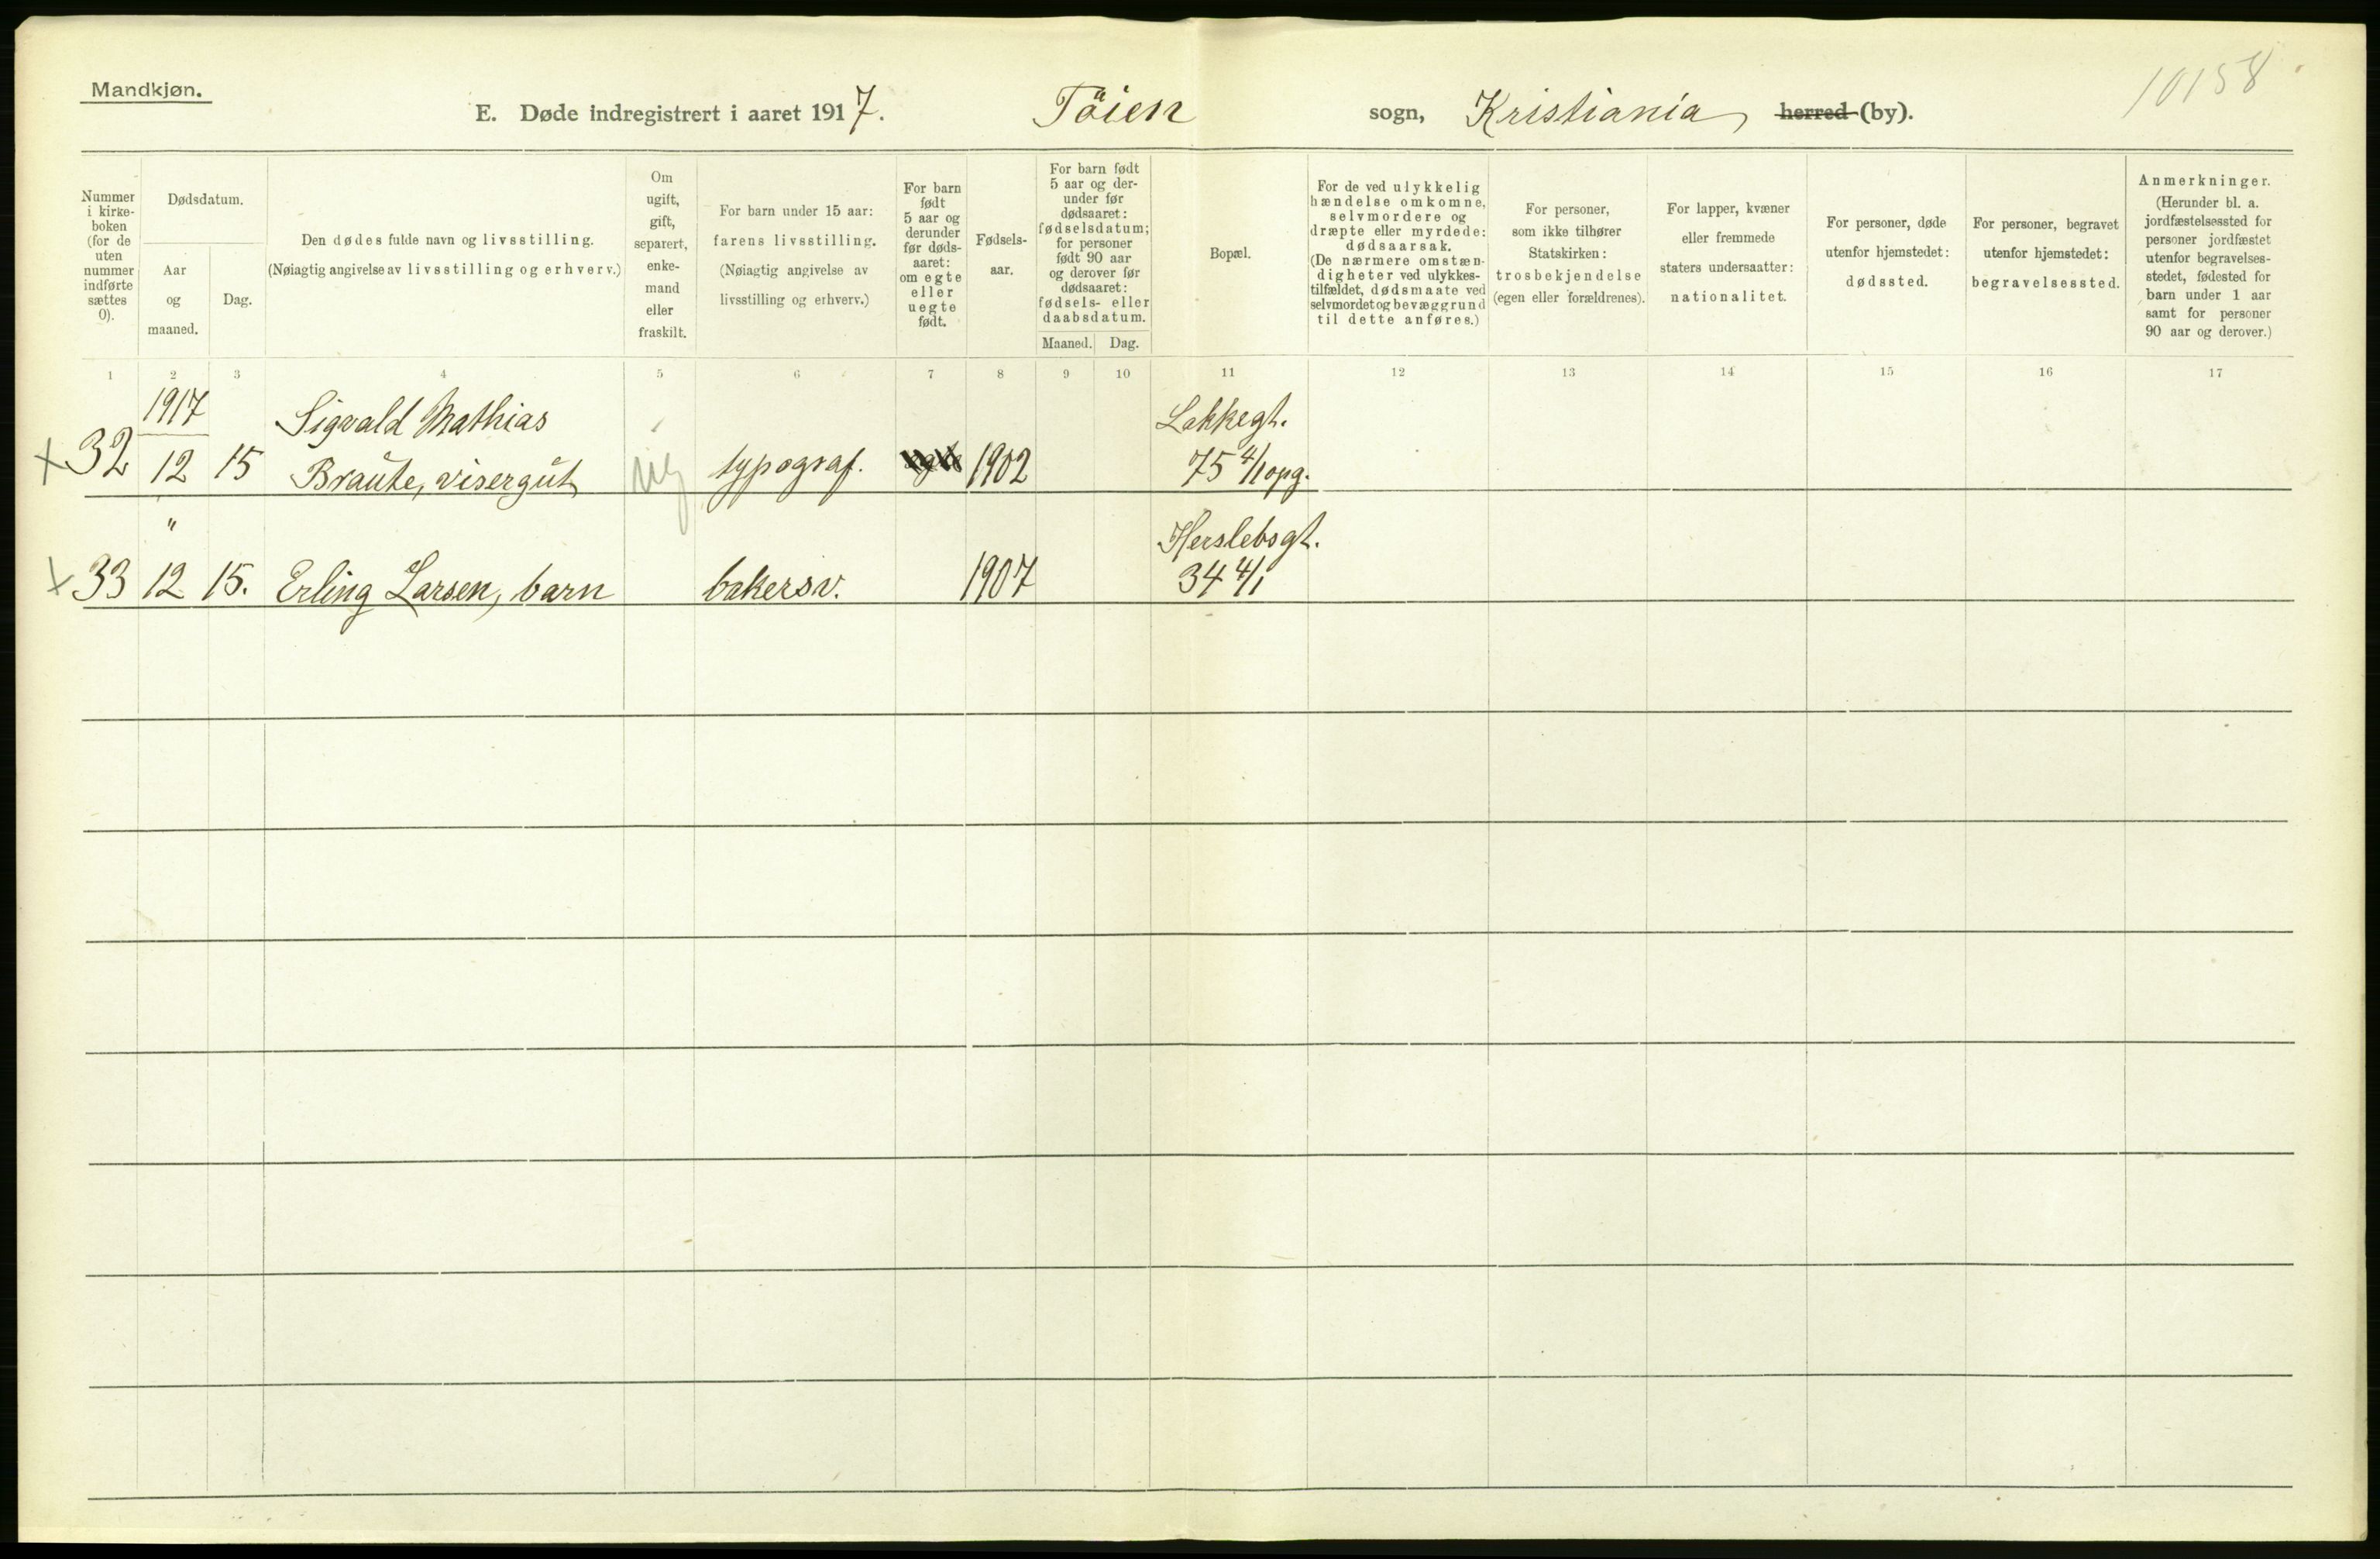 Mandkjøn.
E. Døde indregistrert i aaret 1917.
Töien sogn, Kristiania herred (by).
10158
Nummer
i kirke-
boken
(for de
uten
nummer
indførte
sættes
0).
Dødsdatum.
Aar
og
maaned.
Dag.
Den dødes fulde navn og livsstilling.
(Nøiagtig angivelse av livsstilling og erhverv.)
Om
ugift,
gift,
separert,
enke-
mand
eller
fraskilt.
For barn under 15 aar:
farens livsstilling.
(Nøiagtig angivelse av
livsstilling og erhverv.)
For barn
født
5 aar og
derunder
før døds-
aaret:
om egte
eller
uegte
født.
Fødsels-
aar.
For barn født
5 aar og der-
under før
dødsaaret:
fødselsdatum;
for personer
født 90 aar
og derover før
dødsaaret:
fødsels- eller
daabsdatum.
Maaned. Dag.
Bopæl.
For de ved ulykkelig
hændelse omkomne,
selvmordere og
dræpte eller myrdede:
dødsaarsak.
(De nærmere omstæn-
digheter ved ulykkes-
tilfældet, dødsmaate ved
selvmordet og bevæggrund
til dette anføres.)
For personer,
som ikke tilhører
Statskirken:
trosbekjendelse
(egen eller forældrenes).
For lapper, kvæner
eller fremmede
staters undersaatter:
nationalitet.
For personer, døde
utenfor hjemstedet:
dødssted.
For personer, begravet
utenfor hjemstedet:
begravelsessted.
Anmerkninger.
(Herunder bl. a.
jordfæstelsessted for
personer jordfæstet
utenfor begravelses-
stedet, fødested for
barn under 1 aar
samt for personer
90 aar og derover.)
1 2 3 4 5 6 7 8 9 10 11 12 13 14 15 16 17
1917 Sigvald Mathias Lakkegt.
× 32 12 15 Braute, visergut ug typograf. egte 1902 75 4/1 opg.
" Herslebsgt.
× 33 12 15. Erling Larsen, barn bakersv. 1907 34 4/1